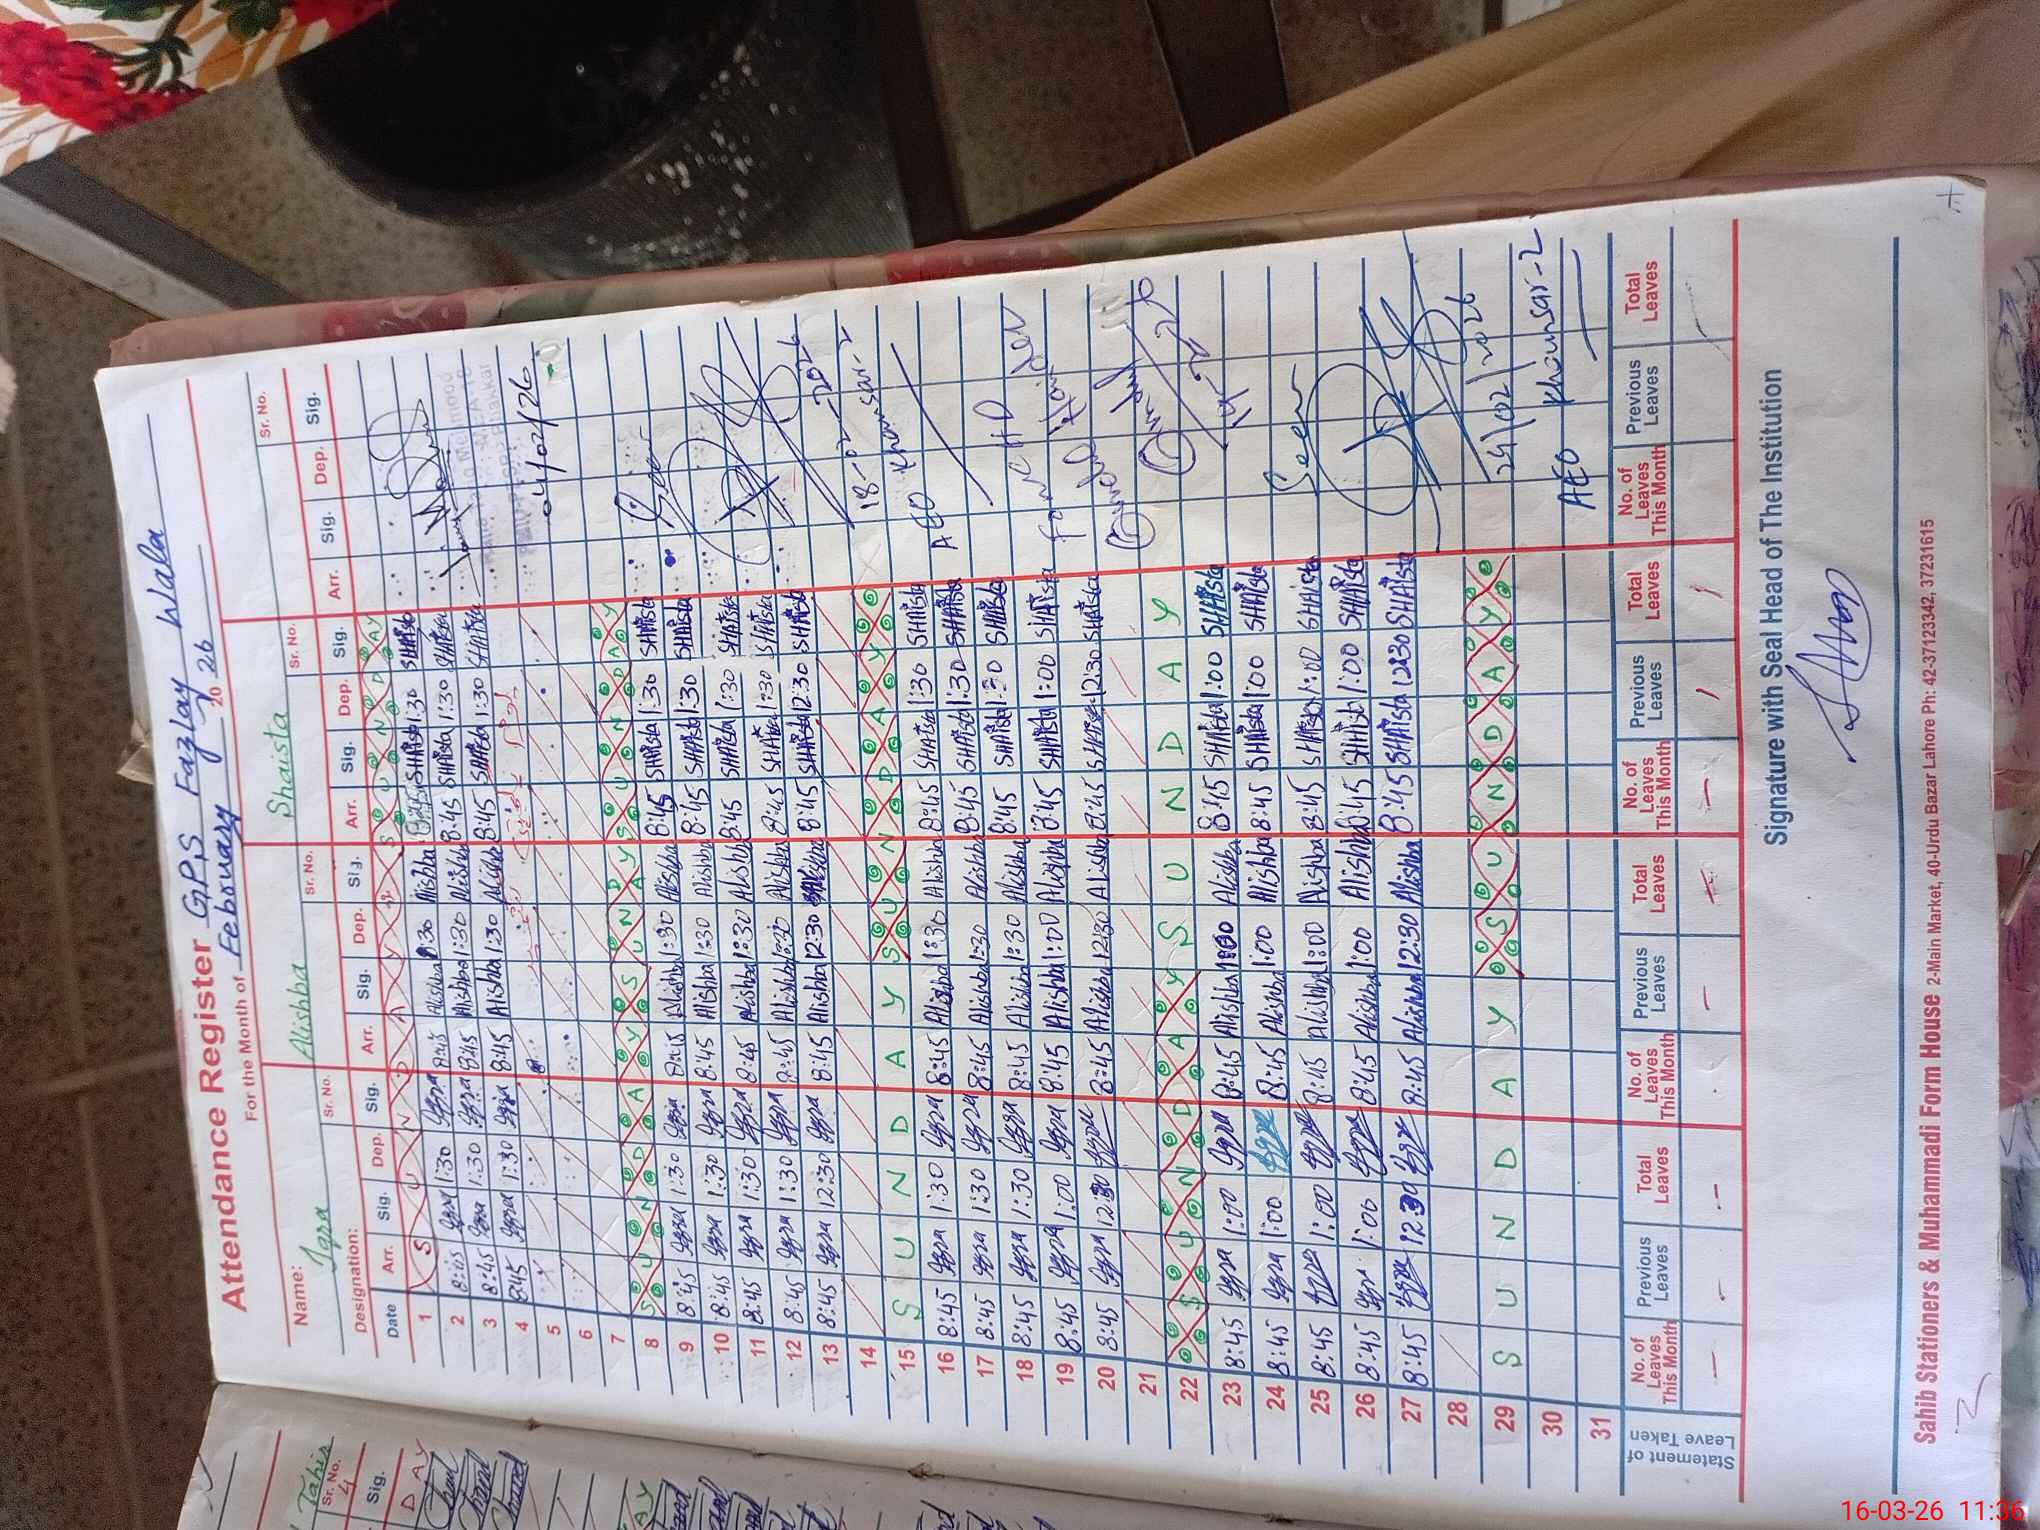 Attendance Register G.P,S Fazlay Wala
For the Month of February 20 26
Name: Iqra Sr. No. Alishba Sr. No. Shaista Sr. No. Sr. No.
Designation:
Date Arr. Sig. Dep. Sig. Arr. Sig. Dep. Sig. Arr. Sig. Dep. Sig. Arr. Sig. Dep. Sig.
1 S U N D A Y S U N D A Y
2 8:45 Iqra 1:30 Iqra 8:45 Alishba 1:30 Alishba 8:45 SHAista 1:30 SHAista
3 8:45 Iqra 1:30 Iqra 8:45 Alishba 1:30 Alishba 8:45 SHAista 1:30 SHAista
4 8:45 Iqra 1:30 Iqra 8:45 Alishba 1:30 Alishba 8:45 SHAista 1:30 SHAista
04/02/26
5
6
7
8 S U N D A Y S U N D A Y S U N D A Y
9 8:45 Iqra 1:30 Iqra 8:45 Alishba 1:30 Alishba 8:45 SHAista 1:30 SHAista
10 8:45 Iqra 1:30 Iqra 8:45 Alishba 1:30 Alishba 8:45 SHAista 1:30 SHAista
11 8:45 Iqra 1:30 Iqra 8:45 Alishba 1:30 Alishba 8:45 SHAista 1:30 SHAista
12 8:45 Iqra 1:30 Iqra 8:45 Alishba 1:30 Alishba 8:45 SHAista 1:30 SHAista
13 8:45 Iqra 12:30 Iqra 8:45 Alishba 12:30 Alishba 8:45 SHAista 12:30 SHAista
14 18-02-2026
15 S U N D A Y S U N D A Y AEO Khansar-2
16 8:45 Iqra 1:30 Iqra 8:45 Alishba 1:30 Alishba 8:45 SHAista 1:30 SHAista
17 8:45 Iqra 1:30 Iqra 8:45 Alishba 1:30 Alishba 8:45 SHAista 1:30 SHAista
18 8:45 Iqra 1:30 Iqra 8:45 Alishba 1:30 Alishba 8:45 SHAista 1:30 SHAista
19 8:45 Iqra 1:00 Iqra 8:45 Alishba 1:00 Alishba 8:45 SHAista 1:00 SHAista
20 8:45 Iqra 12:30 Iqra 8:45 Alishba 12:30 Alishba 8:45 SHAista 12:30 SHAista
21
22 S U N D A Y S U N D A Y
23 8:45 Iqra 1:00 Iqra 8:45 Alishba 1:00 Alishba 8:45 SHAista 1:00 SHAista
24 8:45 Iqra 1:00 Iqra 8:45 Alishba 1:00 Alishba 8:45 SHAista 1:00 SHAista Seen
25 8:45 Iqra 1:00 Iqra 8:45 Alishba 1:00 Alishba 8:45 SHAista 1:00 SHAista
26 8:45 Iqra 1:00 Iqra 8:45 Alishba 1:00 Alishba 8:45 SHAista 1:00 SHAista
27 8:45 Iqra 12:30 Iqra 8:45 Alishba 12:30 Alishba 8:45 SHAista 12:30 SHAista
28
29 S U N D A Y S U N D A Y 24/02/2026
30 AEO Khansar-2
31
Statement of Leave Taken No. of Leaves This Month Previous Leaves Total Leaves No. of Leaves This Month Previous Leaves Total Leaves No. of Leaves This Month Previous Leaves Total Leaves No. of Leaves This Month Previous Leaves Total Leaves
Signature with Seal Head of The Institution
Sahib Stationers & Muhammadi Form House 2-Main Market, 40-Urdu Bazar Lahore Ph: 42-37123342, 37231615
Tahir
Sr. No. 4
Sig.
D AY
16-03-26 11:36